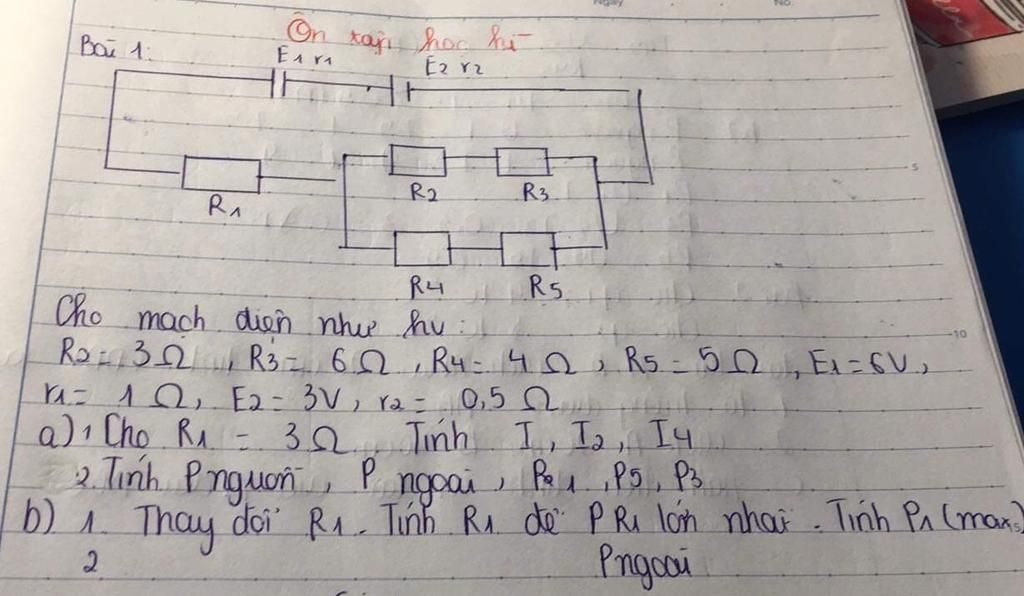 Ôn tập học kì
Bài 1:
E1 r1
E2 r2
R1
R2
R3
R4
R5
Cho mạch điện như hv:
R2 = 3Ω, R3 = 6Ω, R4 = 4Ω, R5 = 5Ω, E1 = 6V,
r1 = 1Ω, E2 = 3V, r2 = 0,5Ω
a) 1, Cho R1 = 3Ω Tính I, I2, I4
2. Tính P nguồn, P ngoài, P1, P5, P3
b) 1. Thay đổi R1. Tính R1 để PR1 lớn nhất. Tính P1 (max)
2 Pngoài
5
10
No.